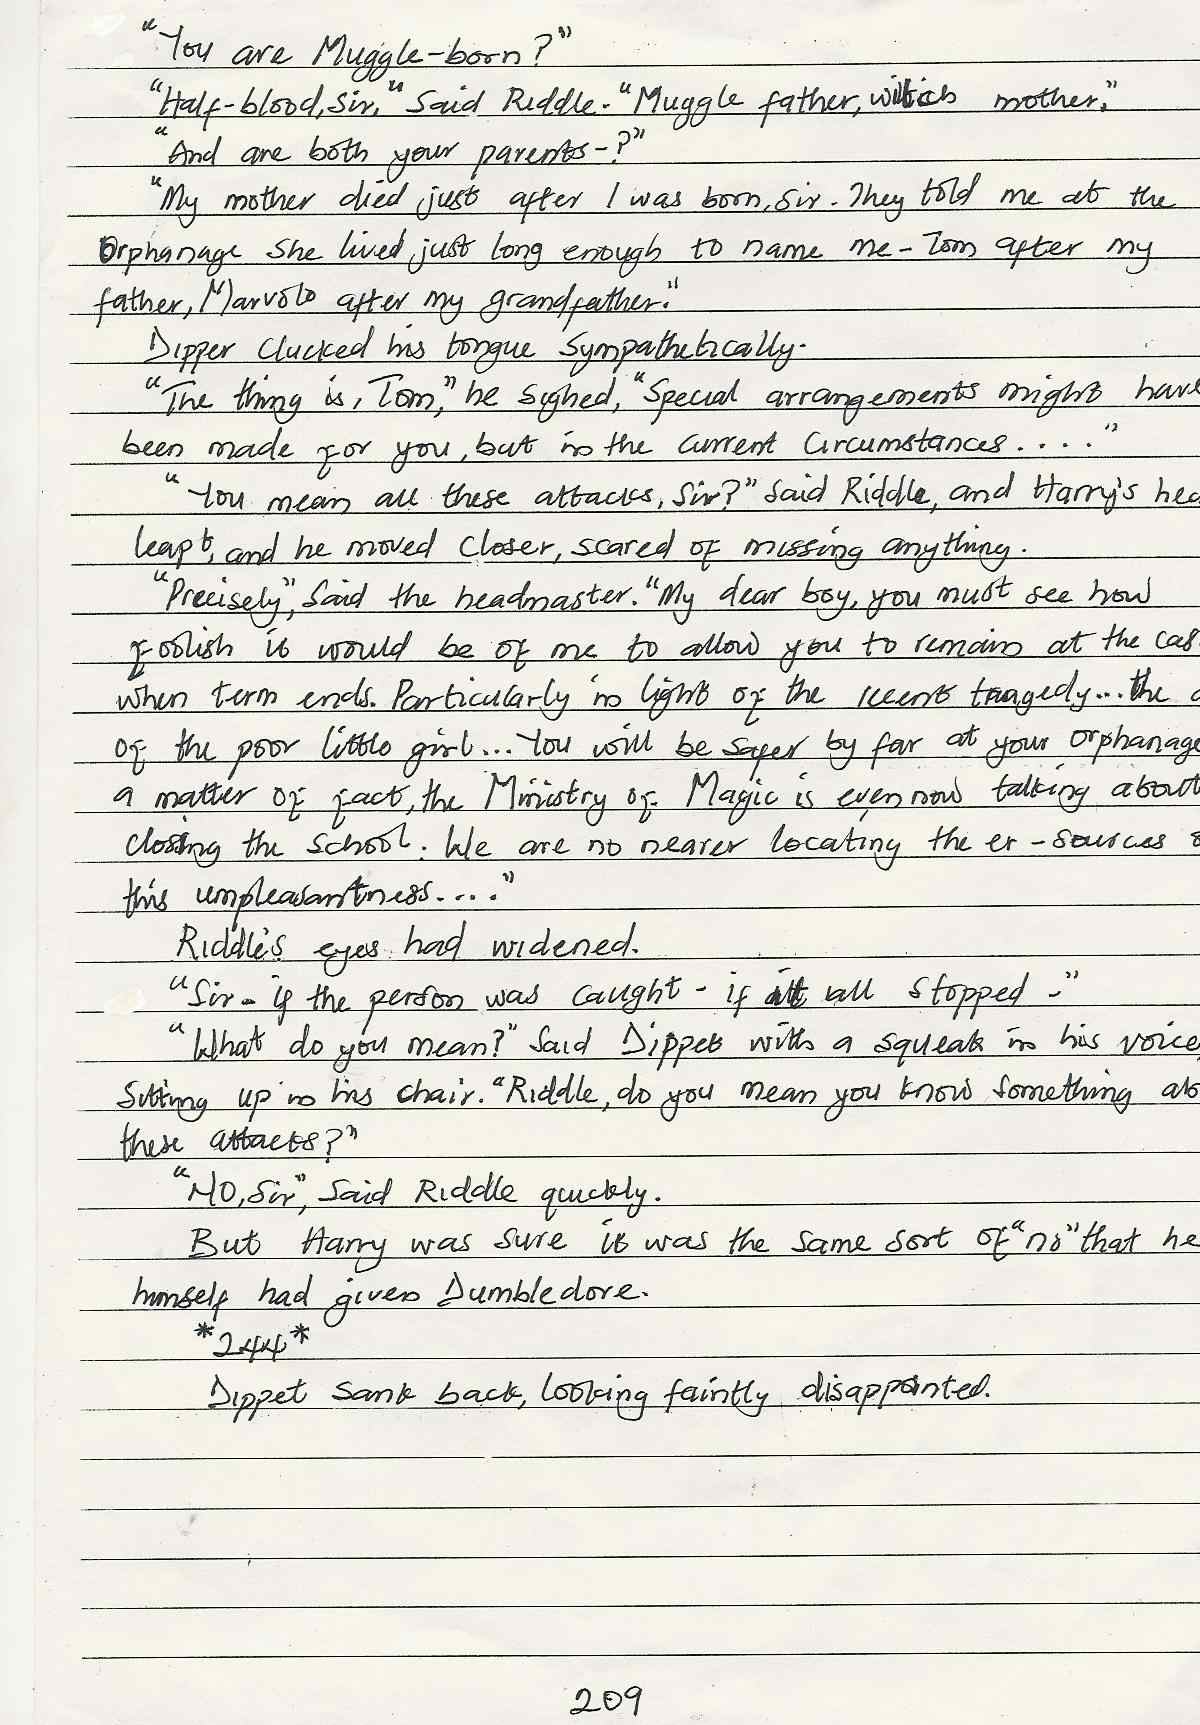 "You are Muggle-born?"
"Half-blood, Sir," Said Riddle. "Muggle father, witch mother."
"And are both your parents-?"
"My mother died just after I was born, Sir. They told me at the
Orphanage she lived just long enough to name me - Tom after my
father, Marvolo after my grandfather."
Dipper Clucked his tongue Sympathetically.
"The thing is, Tom," he sighed, "Special arrangements might have
been made for you, but in the current Circumstances...."
"You mean all these attacks, Sir?" Said Riddle, and Harry's hea
leapt, and he moved closer, scared of missing anything.
"Precisely", Said the headmaster. "My dear boy, you must see how
foolish it would be of me to allow you to remain at the cas
when term ends. Particularly in light of the recent tragedy... the d
of the poor little girl... You will be safer by far at your orphanage
a matter of fact, the Ministry of Magic is even now talking about
closing the school. We are no nearer locating the er - sources o
this unpleasantness...."
Riddle's eyes had widened.
"Sir - if the person was caught - if it all stopped -"
"What do you mean?" Said Dippet with a squeak in his voice,
Sitting up in his chair. "Riddle, do you mean you know something abo
these attacks?"
"NO, Sir", Said Riddle quickly.
But Harry was sure it was the same sort of "no" that he
himself had given Dumbledore.
*244*
Dippet sank back, looking faintly disappointed.
209